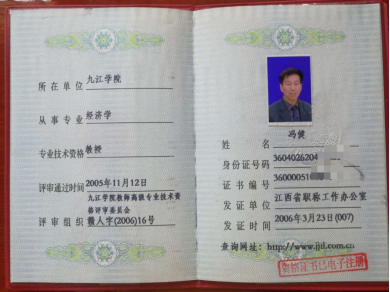 所在单位 九江学院
从事专业 经济学
专业技术资格 教授
评审通过时间 2005年11月12日
九江学院教师高级专业技术资
格评审委员会
评审组织 赣人字(2006)16号
姓名 冯健
身份证号码 3604026204
证书编号 36000051
发证单位 江西省职称工作办公室
发证时间 2006年3月23日(007)
查询网址:http://www.jjtl.com.cn